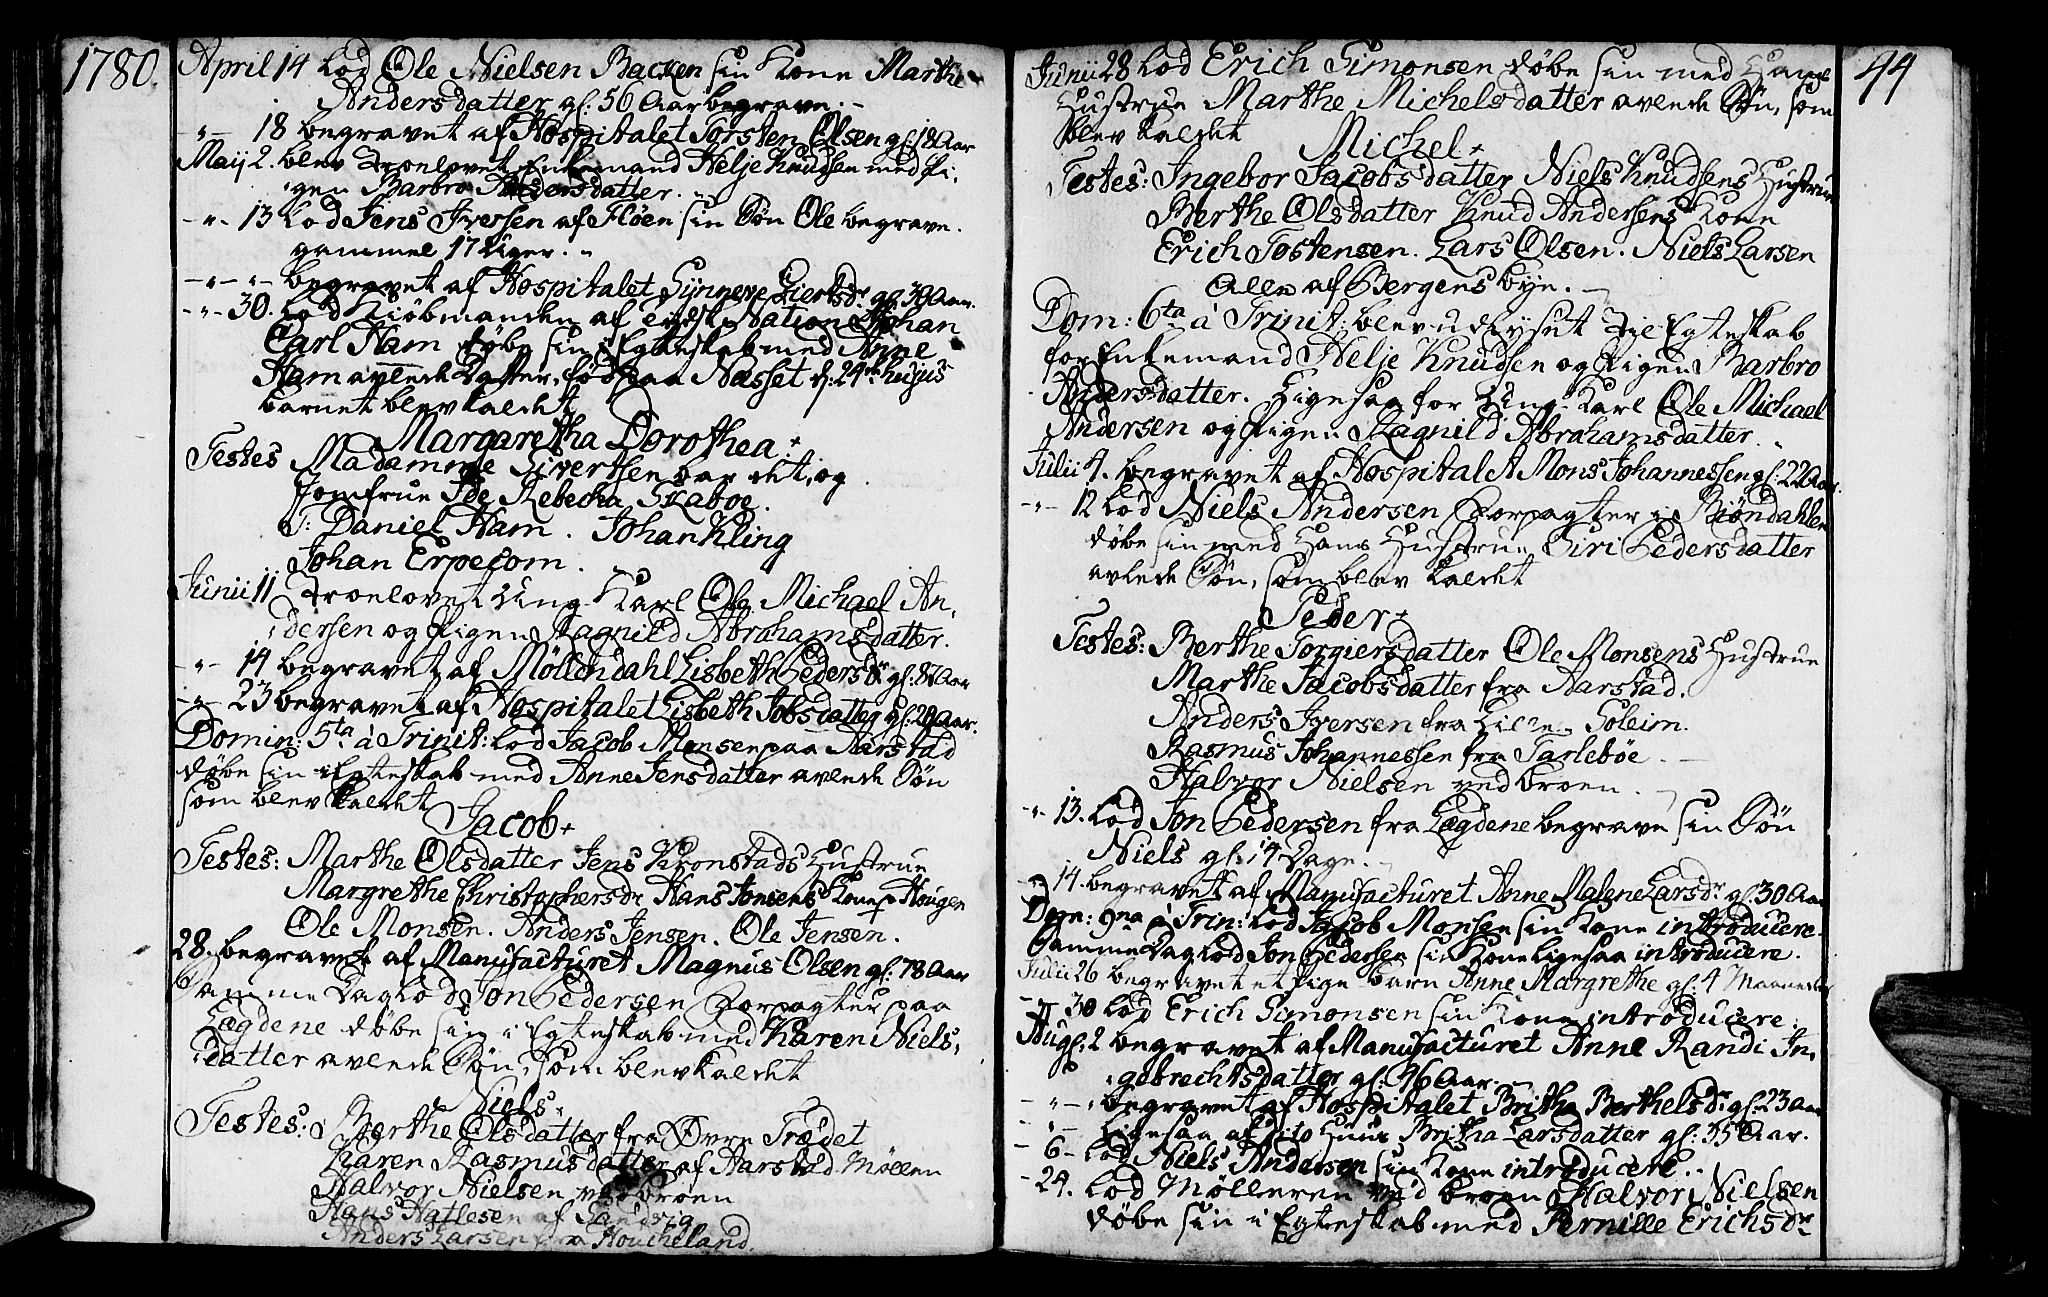 1780.
April 14 lod Ole Nielsen Backen sin Kone Marthe
Andersdatter gl. 56 Aar begrave.
-"- 18 begravet af Hospitalet Torsten Olsen gl: 18 Aar
Maij 2. blev Troelovet Enkemand Helje Knudsen med Pi-
gen Barbro Andersdatter.
-"- 13 lod Jens Iversen af Fløen sin Søn Ole begrave.
gammel 17 Uger.
-"- "- begravet af Hospitalet Synneve Giertsdr gl. 30 Aar.
-"- 30. lod Kiøbmanden af tydsk Nation Johan
Carl Ham døbe sin i Egteskab med Anne
Ham avlede Datter, fød paa Næsset d. 24de hujus
barnet blev kaldet
Margaretha Dorothea
Testes Madamme Siverthsen bar det, og
Jomfrue Ide Rebecha Skaboe.
S: Daniel Ham. Johan Kling
Johan Erpecom.
Junii 11 Troelovet Ung-Karl Ole Michael An-
dersen og Pigen Ragnild Abrahamsdatter.
-"- 14 begravet af Møllendahl Lisbeth Pedersdr gl: 87 Aar
-"- 23 begravet af Hospitalet Lisbeth Jobsdatter gl: 20 Aar.
Domin: 5ta à Trinit: lod Jacob Monsen paa Aarstad
døbe sin i Egteskab med Anne Jensdatter avlede Søn
som blev kaldet
Jacob
Testes: Marthe Olsdatter Jens Kronstads Hustrue
Margrethe Christophersdr Hans Jonsens Kone Hougen
Ole Monsen. Anders Jensen. Ole Jensen.
28. begravet af Manufacturet Magnus Olsen gl: 78 Aar
Samme Dag lod Jon Pedersen Forpagter paa
Lægdene døbe sin i Egteskab med Karen Niels-
datter avlede Søn, som blev kaldet
Niels
Testes: Berthe Olsdatter fra Øvre Trædet
Karen Rasmusdatter af Aarstad Møllen
Halvor Nielsen ved broen
Hans Hatlesen af Sandvig
Anders Larsen fra Houcheland.
44
Junii 28 lod Erich Simonsen døbe sin med Hans
Hustrue Marthe Michelsdatter avlede Søn, som
blev kaldet
Michel
Testes: Ingebor Jacobsdatter Niels Knudsens Hustrue
Berthe Olsdatter Knud Andersens Kone
Erich Tostensen. Lars Olsen. Niels Larsen
Alle af Bergens byn.
Dom: 6ta à Trinit: blev udlyset til Egteskab
for Enkemand Helje Knudsen og Pigen Barbro
Andersdatter. Ligesaa for Ung-Karl Ole Michael
Andersen og Pigen Ragnild Abrahamsdatter.
Julii 4. begravet af Hospitalet Mons Johannessen gl: 22 Aar.
-"- 12 lod Niels Andersen Forpagter i Biøndahlen
døbe sin med Hans Hustrue Siri Pedersdatter
avlede Søn, som blev kaldet
Peder
Testes: Berthe Torgiersdatter Ole Monsens Hustrue
Marthe Jacobsdatter fra Aarstad.
Anders Iversen fra Lille Soleim.
Rasmus Johannessen fra Tarlebøe
Halvor Nielsen ved broen.
-"- 13. lod Jon Pedersen fra Lægdene begrave sin Søn
Niels gl: 14 Dage.
- 14. begravet af Manufacturet Anne Malene Larsdr gl. 30 Aar
Dom: 9na à Trin: lod Jacob Monsen sin Kone introducere.
Samme Dag lod Jon Pedersen sin Kone ligesaa introducere.
Julii 26 begravet et Pige barn Anne Margrethe gl: 4 Maaneder
-"- 30 lod Erich Simonsen sin Kone introducere.
Augs: 2 begravet af Manufacturet Anne Randi In-
gebrechtsdatter gl: 76 Aar.
-"- begravet af Hospitalet Britha Berthelsdr gl: 23 Aar
-"- Ligesaa af dito Huus Britha Larsdatter gl: 35 Aar.
- 6 - lod Niels Andersen sin Kone introducere.
- 24. lod Mølleren ved broen Halvor Nielsen
døbe sin i Egteskab med Pernille Erichsdr